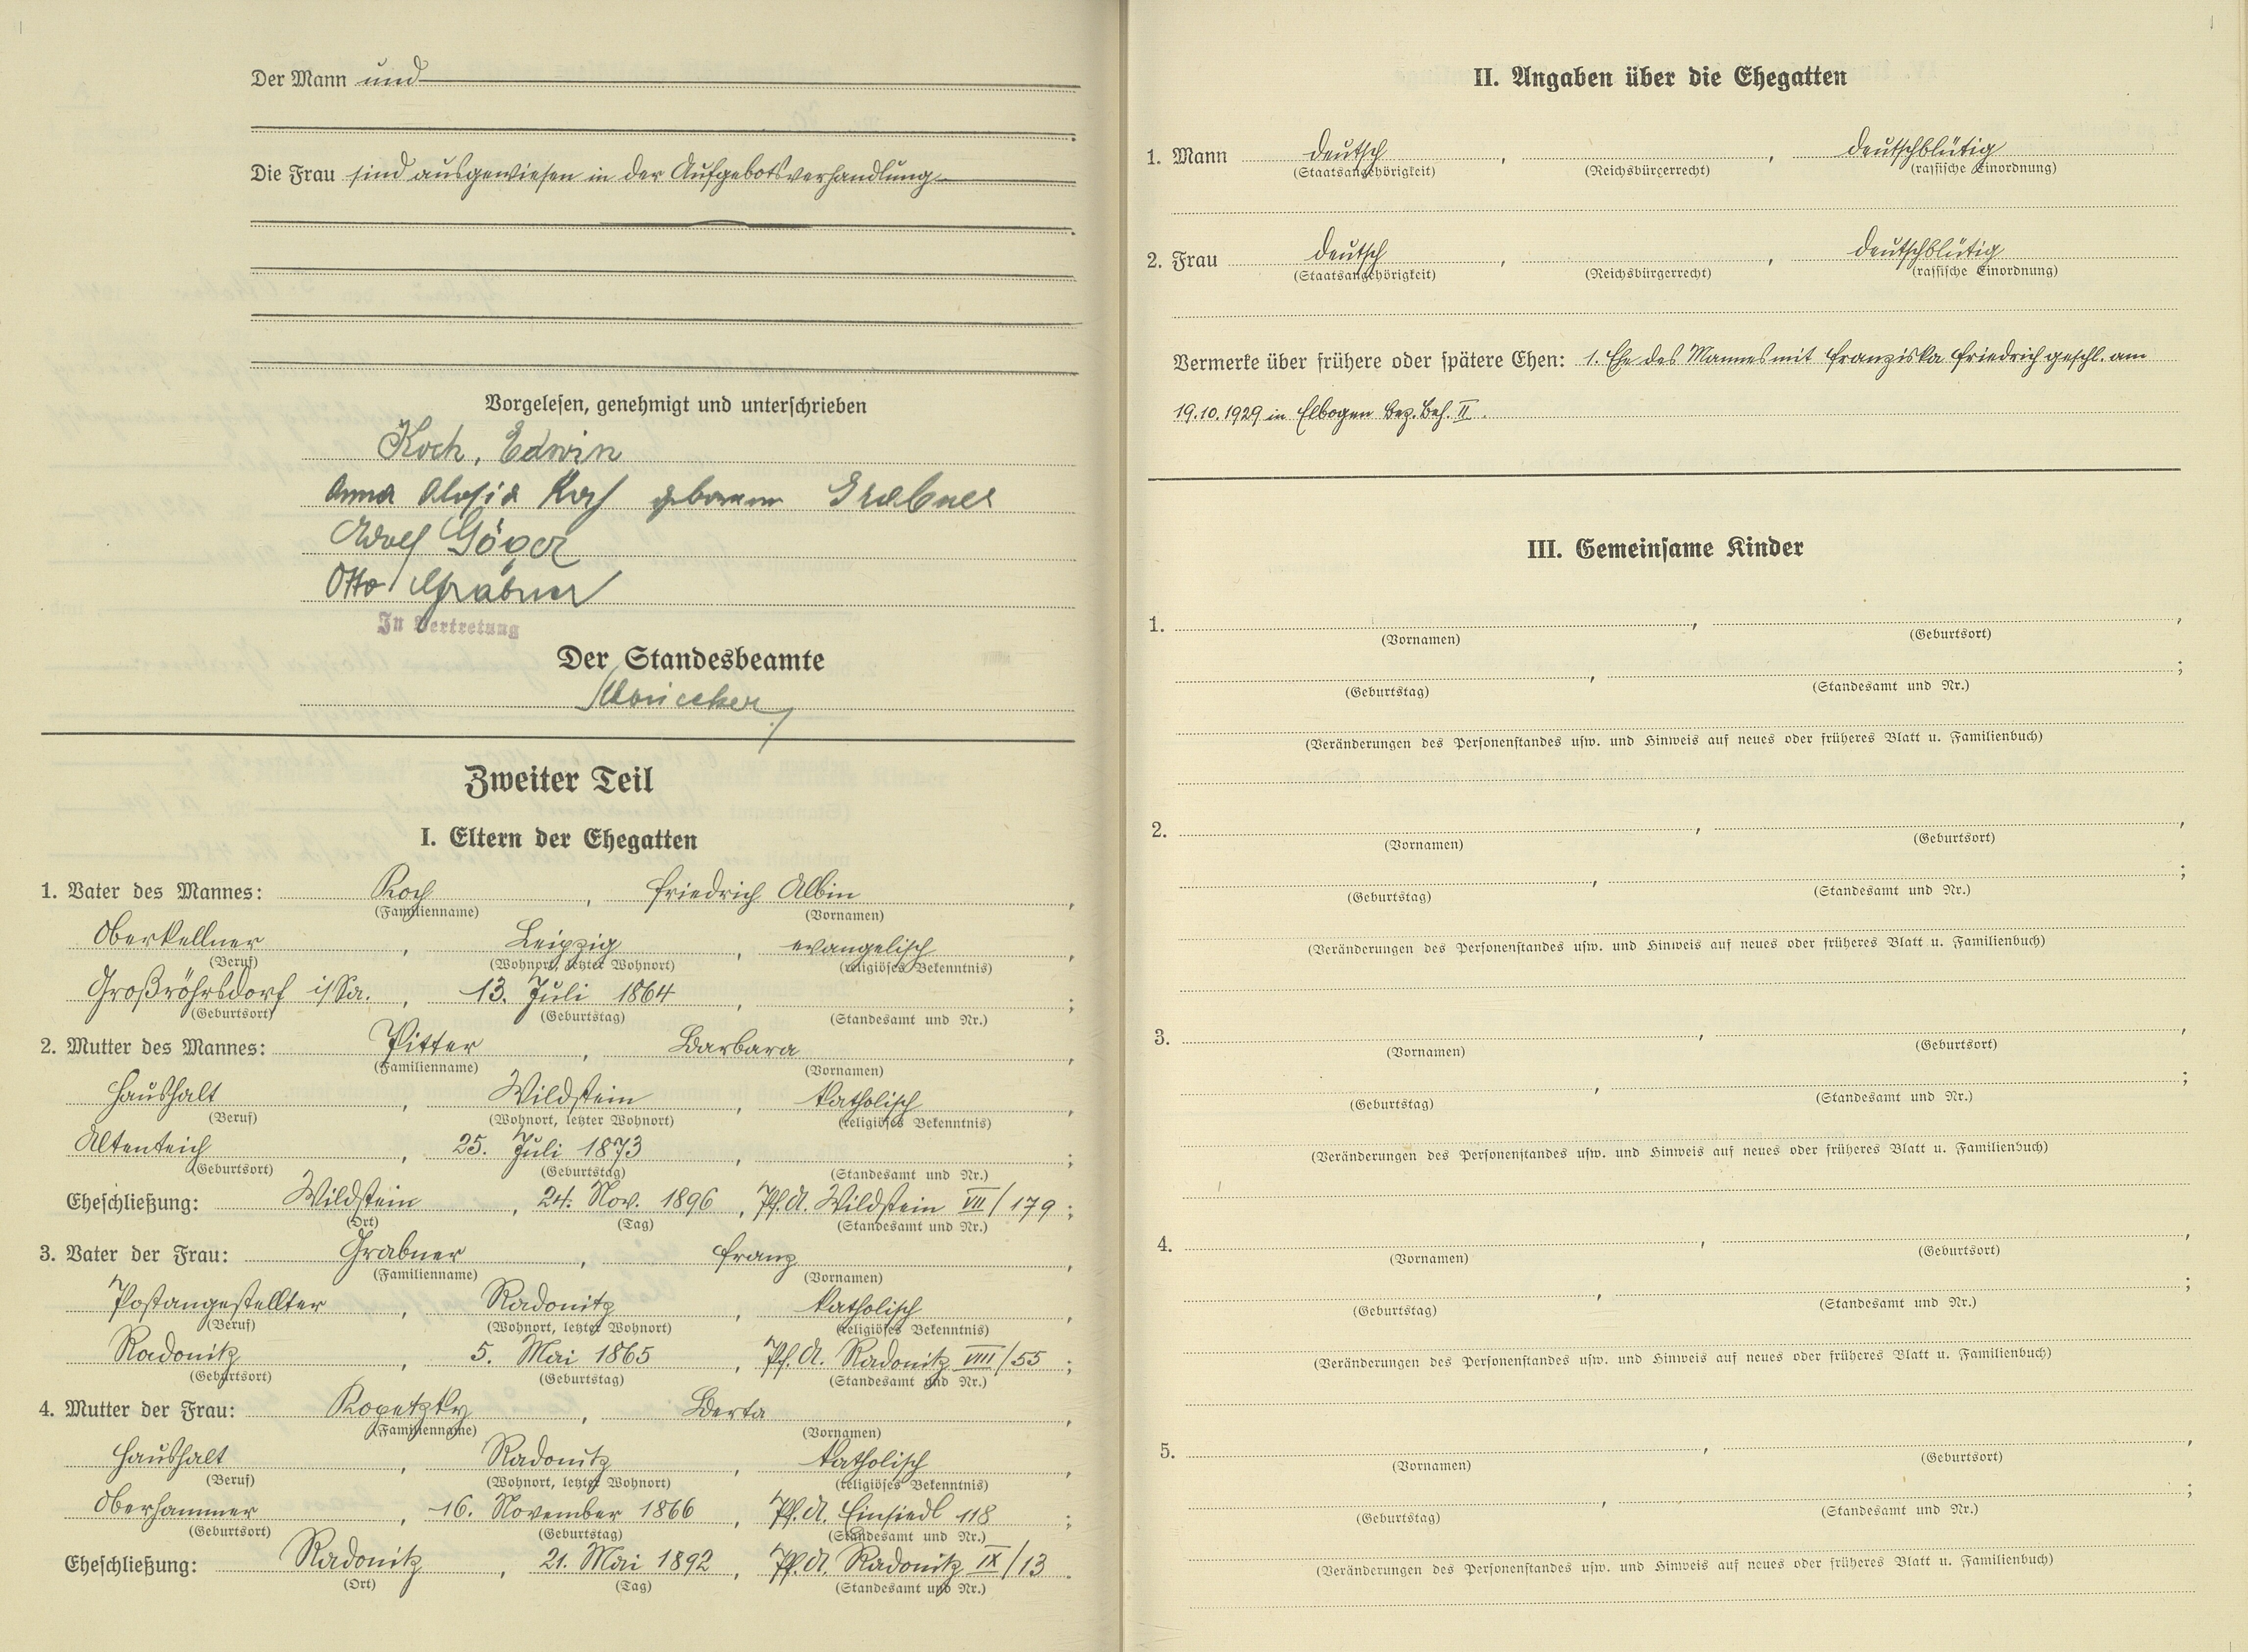 Der Mann und
Die Frau sind ausgewiesen in der Aufgebotsverhandlung
Vorgelesen, genehmigt und unterschrieben
Koch, Edwin
Anna Aloisia Koch geborene Grabner
Adolf Göger
Otto Grabner
In Vertretung
Der Standesbeamte
Zweiter Teil
I. Eltern der Ehegatten
1. Vater des Mannes: Koch, Friedrich Albin,
(Familienname) (Vornamen)
Oberkellner, Leipzig, evangelisch,
(Beruf) (Wohnort, letzter Wohnort) (religiöses Bekenntnis)
Großröhrsdorf i/Sa., 13. Juli 1864, ;
(Geburtsort) (Geburtstag) (Standesamt und Nr.)
2. Mutter des Mannes: Pitter, Barbara,
(Familienname) (Vornamen)
Haushalt, Wildstein, katholisch,
(Beruf) (Wohnort, letzter Wohnort) (religiöses Bekenntnis)
Altenteich, 25. Juli 1873, ;
(Geburtsort) (Geburtstag) (Standesamt und Nr.)
Eheschließung: Wildstein, 24. Nov. 1896, Pf.A. Wildstein VII/179;
(Ort) (Tag) (Standesamt und Nr.)
3. Vater der Frau: Grabner, Franz,
(Familienname) (Vornamen)
Postangestellter, Radonitz, katholisch,
(Beruf) (Wohnort, letzter Wohnort) (religiöses Bekenntnis)
Radonitz, 5. Mai 1865, Pf.A. Radonitz VIII/55;
(Geburtsort) (Geburtstag) (Standesamt und Nr.)
4. Mutter der Frau: Kopetzky, Berta,
(Familienname) (Vornamen)
Haushalt, Radonitz, katholisch,
(Beruf) (Wohnort, letzter Wohnort) (religiöses Bekenntnis)
Oberhammer, 16. November 1866, Pf.A. Einsiedl 118;
(Geburtsort) (Geburtstag) (Standesamt und Nr.)
Eheschließung: Radonitz, 21. Mai 1892, Pf.A. Radonitz IX/13.
(Ort) (Tag) (Standesamt und Nr.)
II. Angaben über die Ehegatten
1. Mann deutsch, , deutschblütig
(Staatsangehörigkeit) (Reichsbürgerrecht) (rassische Einordnung)
2. Frau deutsch, , deutschblütig
(Staatsangehörigkeit) (Reichsbürgerrecht) (rassische Einordnung)
Vermerke über frühere oder spätere Ehen: 1. Ehe des Mannes mit Franziska Friedrich geschl. am
19.10.1929 in Elbogen Bez. Beh. II.
III. Gemeinsame Kinder
1. , ,
(Vornamen) (Geburtsort)
, ;
(Geburtstag) (Standesamt und Nr.)
(Veränderungen des Personenstandes usw. und Hinweis auf neues oder früheres Blatt u. Familienbuch)
2. , ,
(Vornamen) (Geburtsort)
, ;
(Geburtstag) (Standesamt und Nr.)
(Veränderungen des Personenstandes usw. und Hinweis auf neues oder früheres Blatt u. Familienbuch)
3. , ,
(Vornamen) (Geburtsort)
, ;
(Geburtstag) (Standesamt und Nr.)
(Veränderungen des Personenstandes usw. und Hinweis auf neues oder früheres Blatt u. Familienbuch)
4. , ,
(Vornamen) (Geburtsort)
, ;
(Geburtstag) (Standesamt und Nr.)
(Veränderungen des Personenstandes usw. und Hinweis auf neues oder früheres Blatt u. Familienbuch)
5. , ,
(Vornamen) (Geburtsort)
, ;
(Geburtstag) (Standesamt und Nr.)
(Veränderungen des Personenstandes usw. und Hinweis auf neues oder früheres Blatt u. Familienbuch)